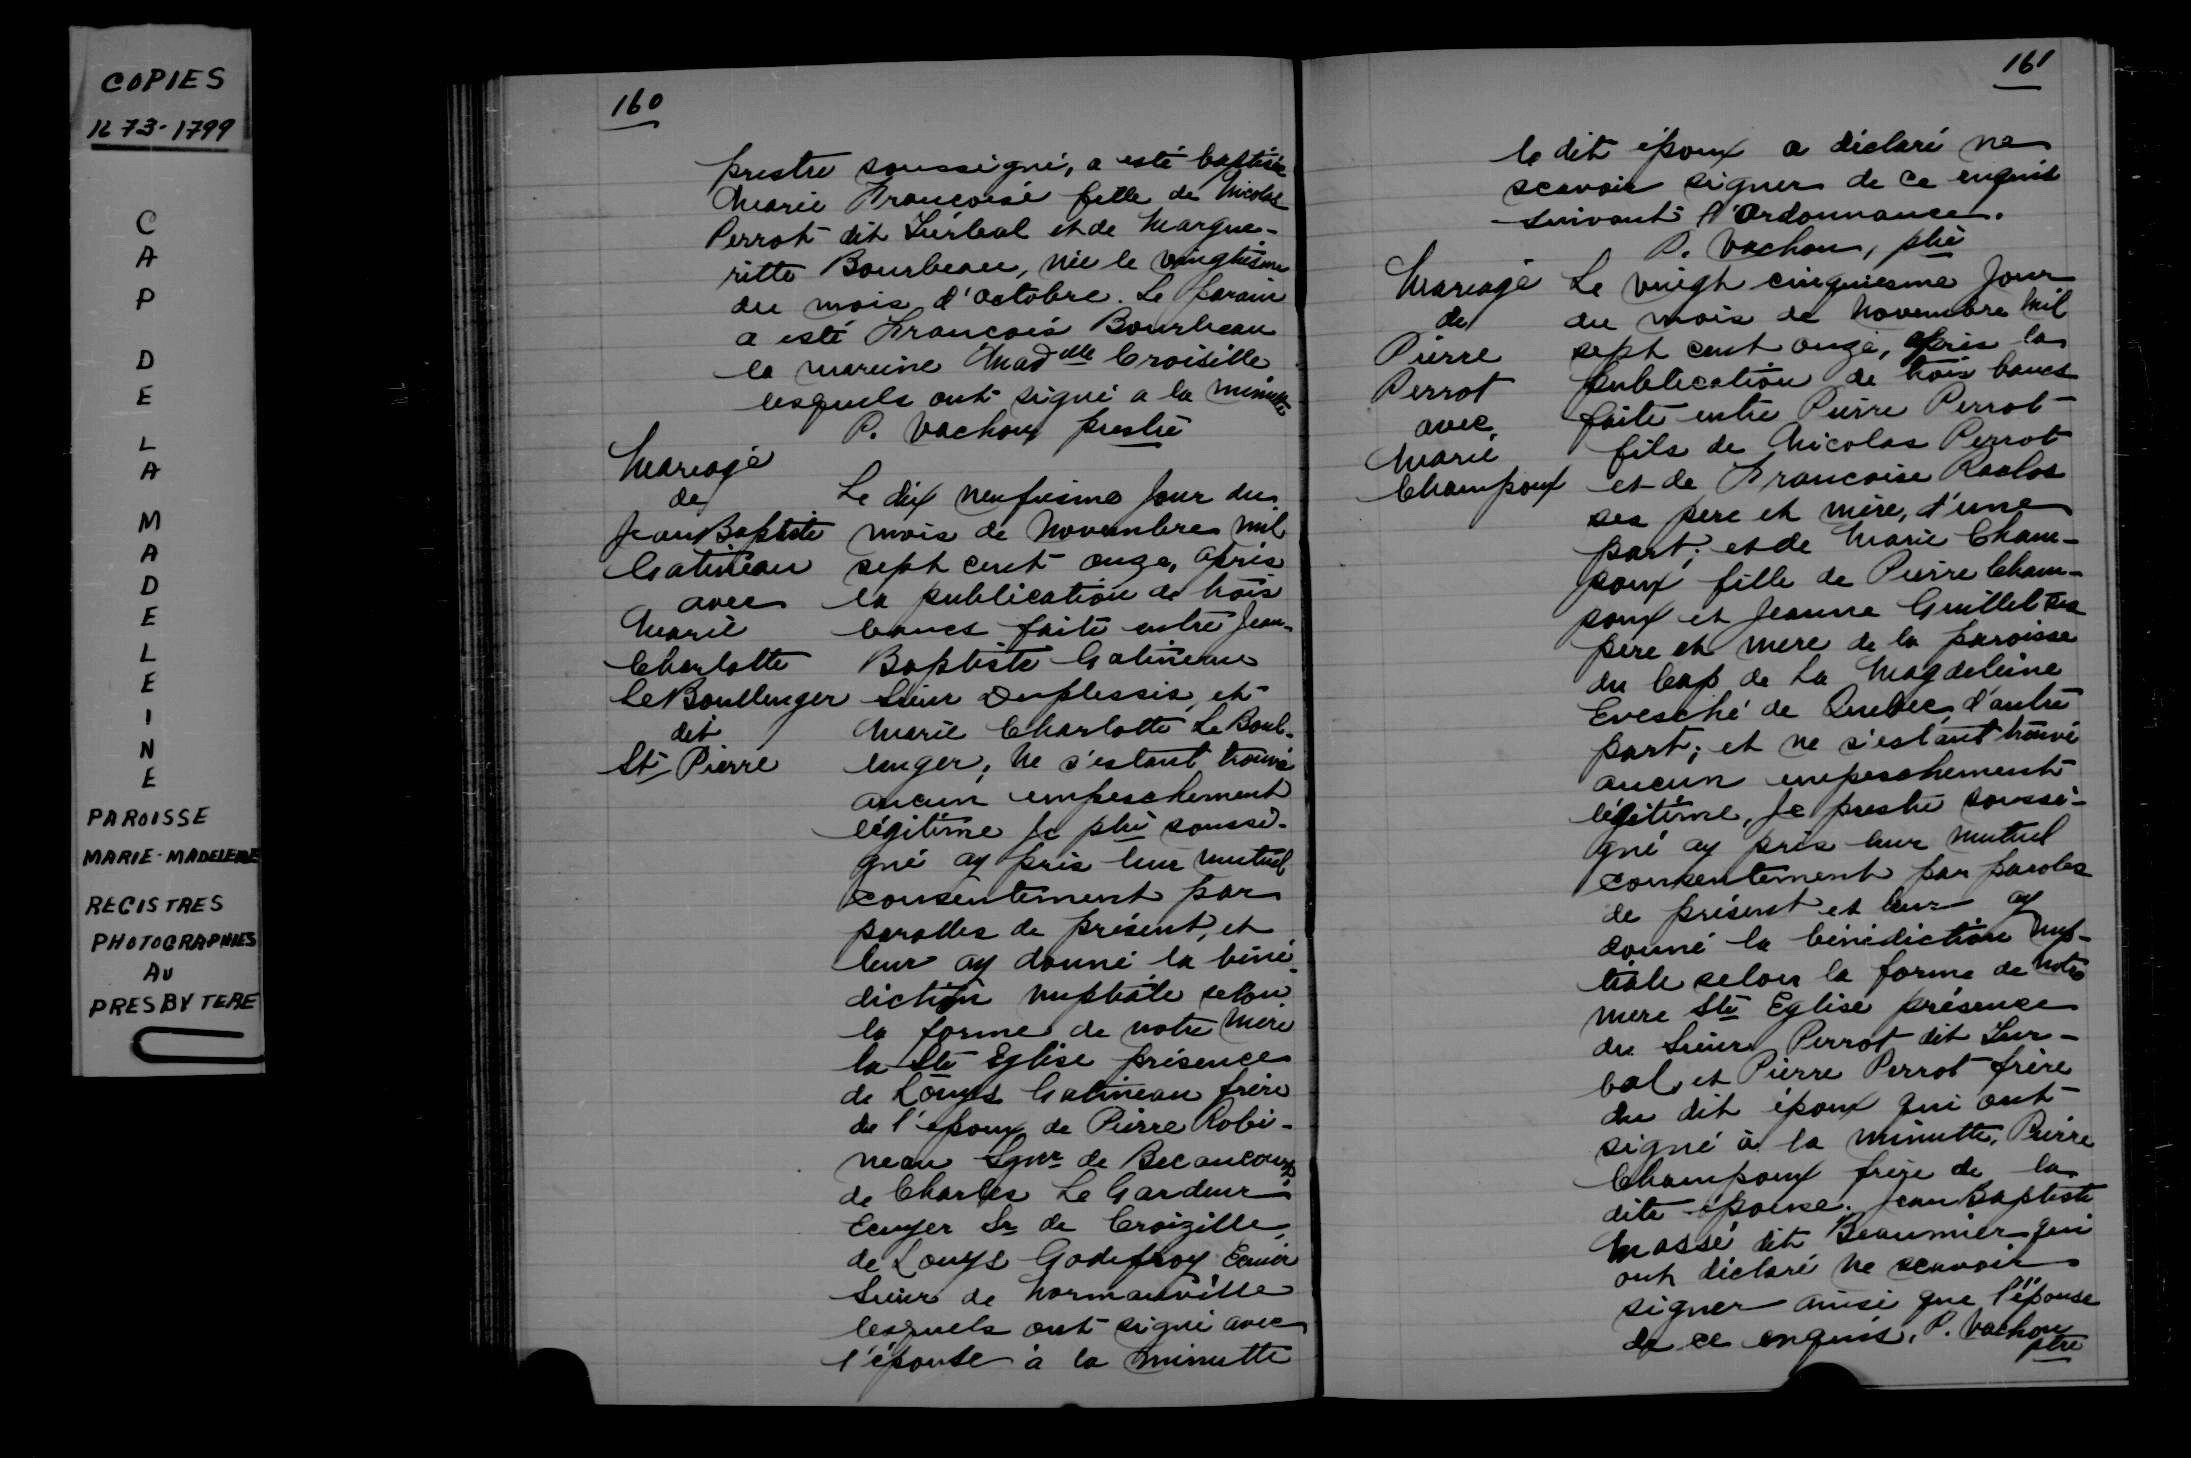 COPIES
1673-1799
C
A
P
D
E
L
A
M
A
D
E
L
E
I
N
E
PAROISSE
MARIE-MADELEINE
REGISTRES
PHOTOGRAPHIES
AU
PRESBYTERE
160
prestre soussigné, a esté baptisée
Marie Francoise fille de Nicolas
Perrot dit Turbal et de Margue-
ritte Bourbeau, née le vinghtiesme
du mois d'octobre. Le parain
a esté Francois Bourbeau
la mareine Mad lle Croisille
lesquels ont signé a la minutte
P. Vachon prestre
Mariage
de
Jean Baptiste
Gatineau
avec
Marie
Charlotte
Le Boullenger
dit
St Pierre
Le dix neufiesme Jour du
mois de Novembre mil
sept cent onze, après
la publication de trois
bancs faite entre Jean-
Baptiste Gatineau
Sieur Duplessis, et
Marie Charlotte Le Boul-
enger; Ne s'estant trouvé
aucun empeschement
légitime Je ptre soussi-
gné ay pris leur mutuel
consentement par
parolles de présent, et
leur ay donné la béné-
diction nuptiale selon
la forme de notre Mere
la Ste Eglise présence
de Louys Gatineau frère
de l'époux de Pierre Robi-
neau Sgnr de Becancour,
de Charles Le Gardeur
Ecuyer Sr de Croizille,
de Louys Godefroy Ecuier
Sieur de Normanville
lesquels ont signé avec
l'épouse à la minutte
161
le dit époux a déclaré ne
scavoir signer de ce enquis
suivant l'Ordonnance.
P. Vachon, ptre
Mariage
de
Pierre
Perrot
avec
Marie
Champoux
Le vingt cinquiesme Jour
du mois de Novembre mil
sept cent onze, après la
publication de trois bancs
faite entre Pierre Perrot
fils de Nicolas Perrot
et de Francoise Raclos
ses pere et mère, d'une
part; et de Marie Cham-
poux fille de Pierre Cham-
poux et Jeanne Guillet ses
père et mere de la paroisse
du Cap de La Magdeleine
Evesché de Quebec, d'autre
part; et ne s'estant trouvé
aucun empeschement
légitime, Je prestre soussi-
gné ay pris leur mutuel
consentement par paroles
de présent et leur ay
donné la bénédiction nup-
tiale selon la forme de notre
mere Ste Eglise présence
du Sieur Perrot dit Tur-
bal et Pierre Perrot frère
du dit époux qui ont
signé à la minutte, Pierre
Champoux frère de la
dite épouse. Jean Baptiste
Massé dit Beaumier qui
ont déclaré ne scavoir
signer ainsi que l'épouse
de ce enquis. P. Vachon
ptre